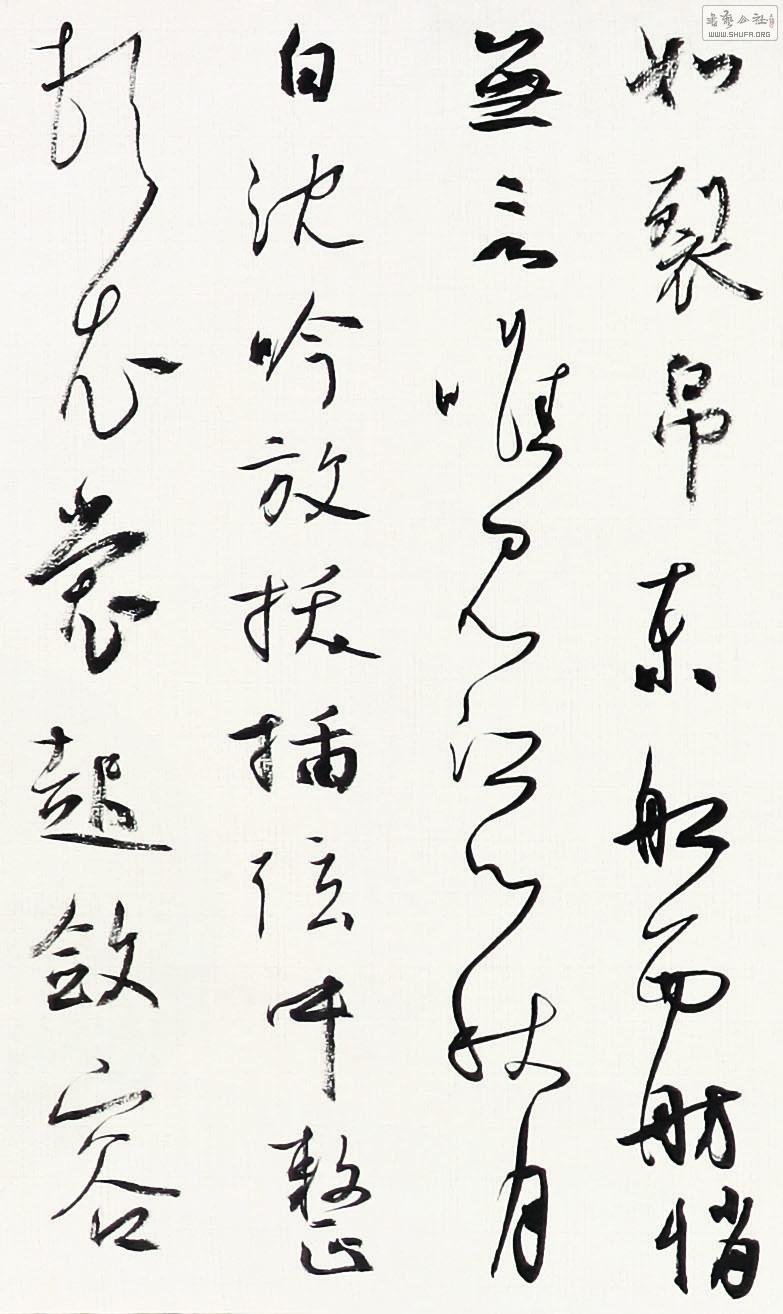 如裂帛東船西舫悄
無言唯見江心秋月
白沈吟放撥插弦中整
頓衣裳起斂容
書藝公社
WWW.SHUFA.ORG